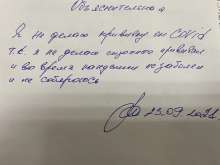 Объяснительная
Я не делаю прививку от Covid
т.к. я не делал сколько прививок
и во время пандемии не заболел
и не собираюсь
23.09.2021